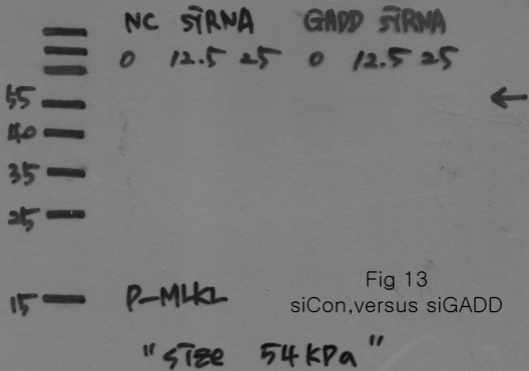 NC siRNA GADD siRNA
0 12.5 25 0 12.5 25
55
40
35
25
15
P-MLKL
Fig 13
siCon,versus siGADD
"size 54 KPa"